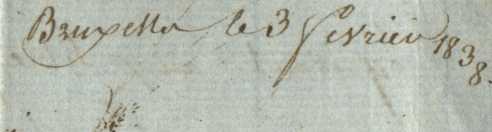 Bruxelles le 3 fevrier 1838.